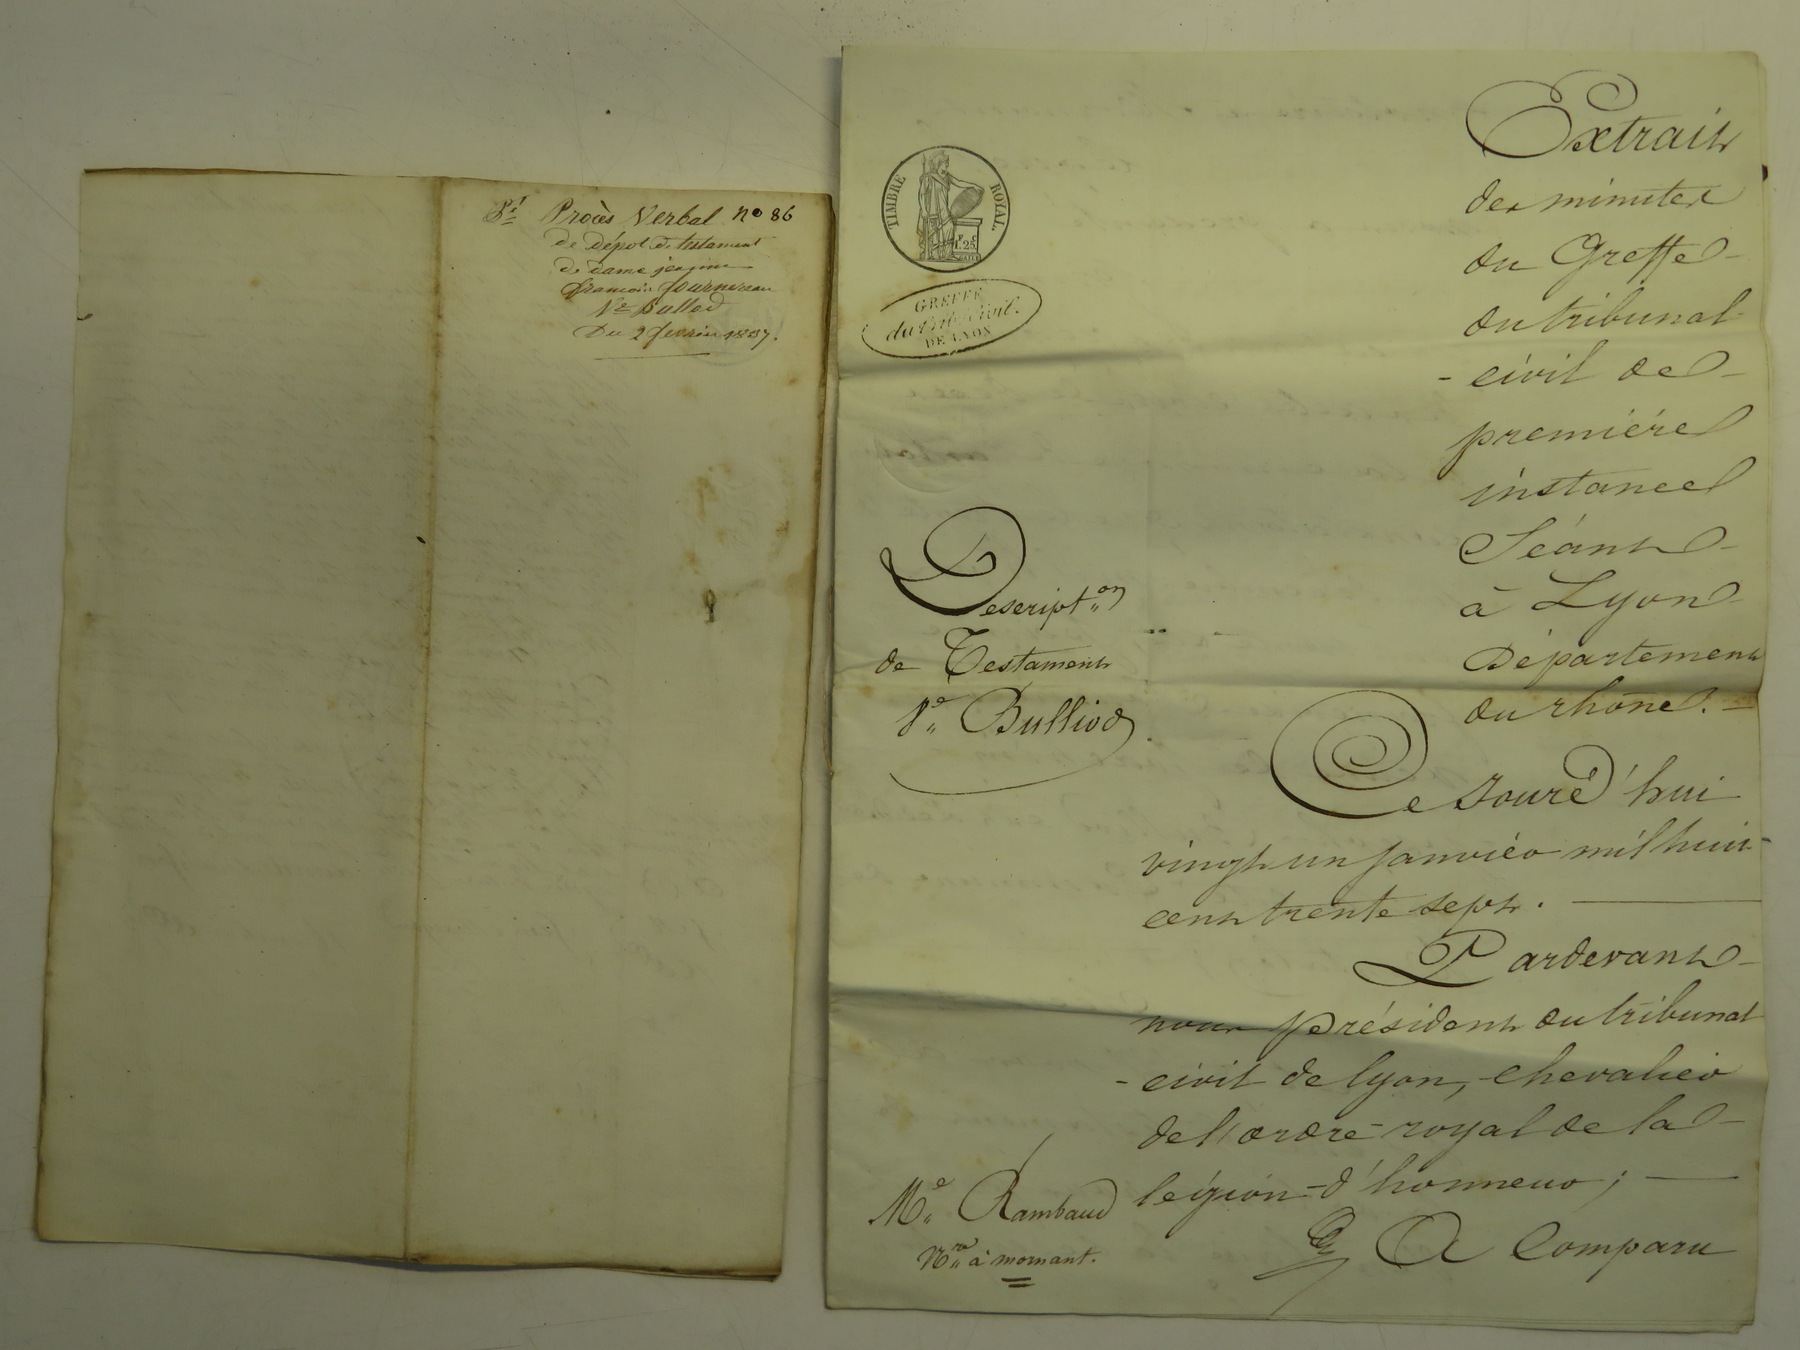 Procès Verbal no 86
de Dépot de testament
de dame jeanne
françoise fournereau
Ve Bulliod
Du 2 fevrier 1837.
TIMBRE ROYAL.
GREFFE
du trib. Civil.
DE LYON
Extrait
des minutes
du Greffe
du tribunal
civil de
première
instance
Séant
à Lyon
Département
du rhône.
Descript.on
de Testament
Ve Bulliod
Ce Jourd'hui
vingt un janvier mil huit
cent trente sept.
Pardevant
nous président du tribunal
civil de lyon, chevalier
de l'ordre royal de la
légion d'honneur;
Me Rambaud
Nre à mornant.
A Comparu